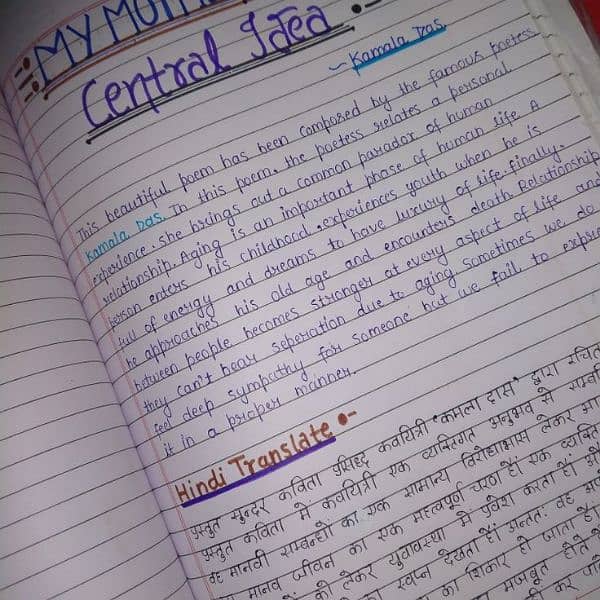 MY MOTH
Central Idea
~ Kamala Das
This beautiful poem has been composed by the famous poetess
Kamala Das. In this poem, the poetess relates a personal
experience. She brings out a common parador of human
relationship. Aging is an important phase of human life A
person enters his childhood, experiences youth when he is
full of energy and dreams to have luxury of life. finally.
he approaches his old age and encounters death. Relationship
between people becomes stronger at every aspect of life and
they can't bear seperation due to aging sometimes we do
feel deep sympathy for someone but we fail to expre
it in a proper manner.
Hindi Translate :-
प्रस्तुत सुन्दर कविता प्रसिद्ध कवयित्री "कमला दास" द्वारा रचित
प्रस्तुत कविता में कवयित्री एक व्यक्तिगत अनुभव से सम्बी
वह मानवी सम्बन्धों का एक सामान्य विरोधाभास लेकर आ
मानव जीवन का एक महत्वपूर्ण चरण हैं। एक व्यक्ति
में प्रवेश करता हैं।
को लेकर युवावस्था
का स्वप्न देखता हैं। अन्ततः वह
का शिकार हो जाता हैं।
मजबूत होते